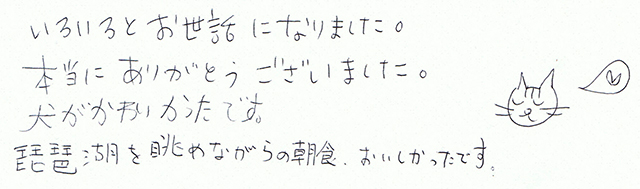 いろいろとお世話になりました。
本当にありがとうございました。
犬がかわいかったです。
琵琶湖を眺めながらの朝食、おいしかったです。